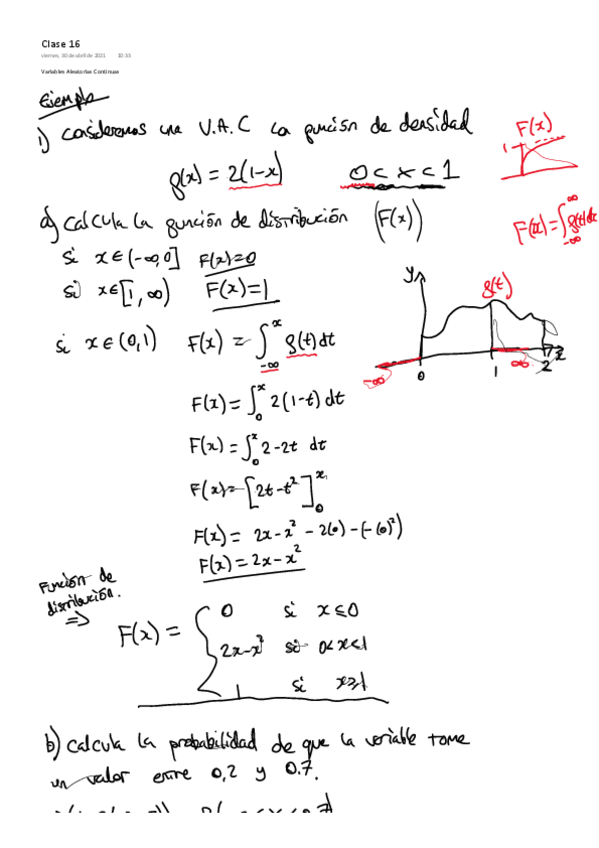 Clase 16
viernes, 30 de abril de 2021 10:33
Variables Aleatorias Continuas
Ejemplo
1) Consideremos una V.A.C la función de densidad
g(x) = 2(1-x) 0 < x < 1
F(x)
1
a) Calcula la función de distribución (F(x))
F(x) = ∫_{-∞}^{∞} g(t)dt
si x ∈ (-∞,0] F(x)=0
si x ∈ [1, ∞) F(x)=1
y
g(t)
-∞ 0 1 ∞ 2 x
si x ∈ (0,1) F(x) = ∫_{-∞}^{x} g(t) dt
F(x) = ∫_0^x 2(1-t) dt
F(x) = ∫_0^x 2-2t dt
F(x) = [2t-t²]_0^x
F(x) = 2x-x² - 2(0) - (-(0)²)
F(x) = 2x-x²
Función de
distribución.
=>
F(x) = {
0 si x≤0
2x-x² si 0<x<1
1 si x≥1
b) Calcula la probabilidad de que la variable tome
un valor entre 0,2 y 0.7.